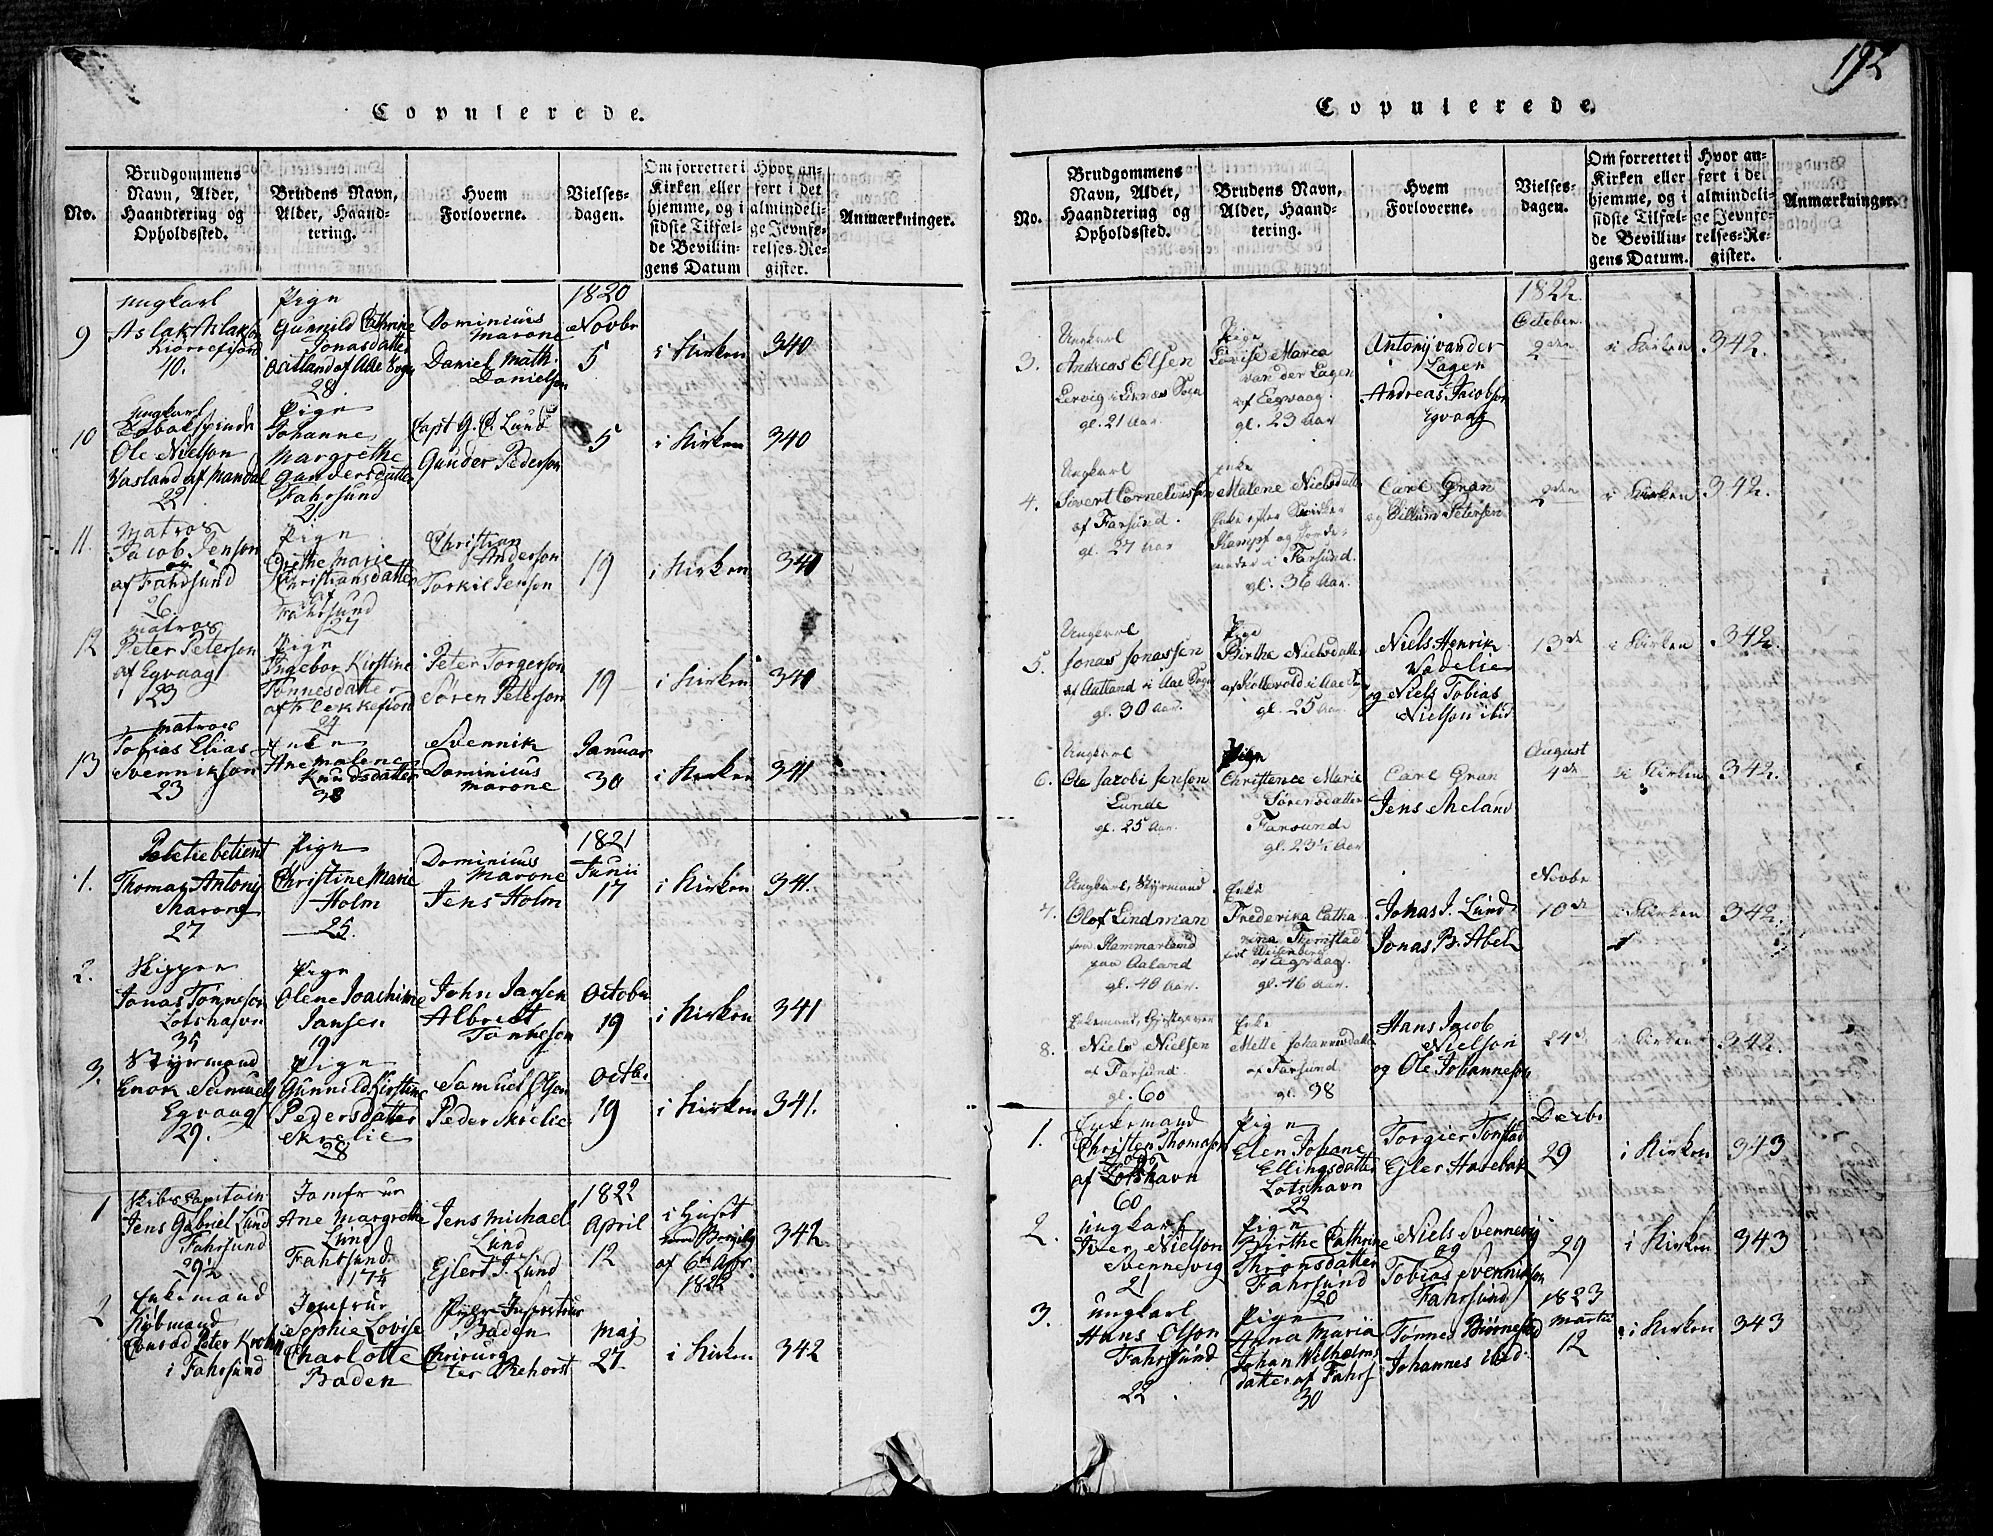 192
Copulerede.
No.
Brudgommens
Navn, Alder,
Haandtering og
Opholdssted.
Brudens Navn,
Alder, Haand-
tering.
Hvem
Forloverne.
Vielses-
dagen.
Om forrettet i
Kirken eller
hjemme, og i
sidste Tilfæl-
de Bevillin-
gens Datum
Hvor an-
ført i det
almindeli-
ge Jevnfø-
relses-Re-
gister.
Anmærkninger.
1820
Novbr
9
ungkarl
Aslak Aslaksen
40.
Pige
Gunnild Cathrine
Jonasdatter
28
Dominius
Marone
Daniel Math.
Danielsen
5
i Kirken
340
10
Ungkarl
Ole Nielson
Vasland af Mandal
22
Pige
Johanne
Margrethe
Gundersdatter
Fahrsund
21
Capt G. C. Lund
Gunder Pederson
5
i Kirken
340
11.
Matros
Jacob Jenson
af Fahrsund
26
Pige
Grethe Marie
Christiansdatter
af
Fahrsund
27
Christian
Anderson
Torkil Jenson
19
i Kirken
341
12
matros
Peter Peterson
af Egvaag
23
Pige
Ingebor Kirstine
Tønnesdatter
af Flekkefiord
Peter Torgerson
Sören Peterson
19
i Kirken
341
13
matros
Tobias Elias
Svennikson
23
Enke
Ane Malene
Knudsdatter
38
Svennik
Dominius
Marone
Januar
30
i Kirken
341
1.
Thomas Antonij
Marone
27
Pige
Christine Marie
Holm
25
Dominius
Marone
Jens Holm
1821
Junii
17
i Kirken
341.
2.
Skipper
Jonas Tønneson
Lotshavn
35
Pige
Olene Joachime
Jansen
19
John Jansen
Albrekt
Tønneson
October
19
i Kirken
341
3.
Styrmand
Enok Samuels
Egvaag
29.
Pige
Gunnild Kirstine
Pedersdatter
Skrelie
28
Samuel Olson
Peder Skrelie
Octbr
19
i Kirken
341.
1
Skibs Capitain
Jens Gabriel Lund
Fahrsund
29½
Jomfrue
Ane Margrethe
Lund
Fahrsund
17¼
Jens Michael
Lund
Ejlert J. Lund
1822
April
12
i Huset
af 6te Apr.
1822
342
2
Enkemand
Kiøbmand
Conrad Peter Krohn
i Fahrsund
Jomfrue
Sophie Lovise
Charlotte
Baden
Baden
Chirurg
ter Rehorst
Maj
27
i Kirken
342
Copulerede.
No.
Brudgommens
Navn, Alder,
Haandtering og
Opholdssted.
Brudens Navn,
Alder, Haand-
tering.
Hvem
Forloverne.
Vielses-
dagen.
Om forrettet i
Kirken eller
hjemme, og i
sidste Tilfæl-
de Bevillin-
gens Datum.
Hvor an-
ført i det
almindeli-
ge Jevnfø-
relses-Re-
gister.
Anmærkninger.
1822.
October
3.
Ungkarl
Andreas Olsen
gl. 21 Aar.
Pige
Lovise Maria
van der Lagen
af Egvaag.
gl. 23 Aar
Antonij vander
Lagen
Andreas Jacobson
Egvaag
2den
i Kirken
342.
4.
Ungkarl
Sivert Corneliussen
af Farsund.
gl. 27 Aar
Enke
Malene Nielsdatter
Enke efter
i Farsund.
gl. 36 Aar.
Carl Gran
og Villum Petersen
2den
i Kirken
342.
5.
Ungkarl
Jonas Jonassen
gl. 30 Aar.
Pige
Birthe Nielsdatter
gl. 25 Aar.
Niels Henrik
Vedelie
og Niels Tobias
Nielson ibid.
13de
i Kirken
342.
6.
Ungkarl
Ole Jacobi Jenson
Lunde
gl. 25 Aar.
Pige
Christence Marie
Sørensdatter
Farsund.
gl. 23½ Aar
Carl Gran
Jens Meland
August
4de
i Kirken
342.
7.
Ungkarl, Styrmand
Olof Lindman
fra Hammarland
paa Aaland
gl. 40 Aar.
Enke
Frederica Catha
rina
af Egvaag.
gl. 46 Aar.
Jonas J. Lund
Jonas B. Abel
Novbr
10de
i Kirken
342.
8.
Enkemand, Giestgiver
Niels Nielsen
af Farsund.
gl. 60
Enke
Mette Johannisdatter
af Farsund.
gl. 38
Hans Jacob
Nielson
og Ole Johanneson
24de
i Kirken
342.
1.
Enkemand
Christen Thomason
af Lotshavn
60
Pige
Elen Johane
Ellingsdatter
Lotshavn
22
Torgier Tonstad
Ejler Hasebak
Decbr
29
i Kirken
343
2.
ungkarl
Iver Nielson
Svennevig
21
Pige
Birthe Cathrine
Thronsdatter
Fahrsund
20
Niels Svennevig
og
Tobias Svennikson
Fahrsund
29
i Kirken
343
3.
ungkarl
Hans Olson
Fahrsund
22
Pige
Anna Maria
Johan Wilhelms
datter af Fahrs
30
Tønnes Biørnestad
Johannes ibid.
1823
Martii
12
i Kirken
343